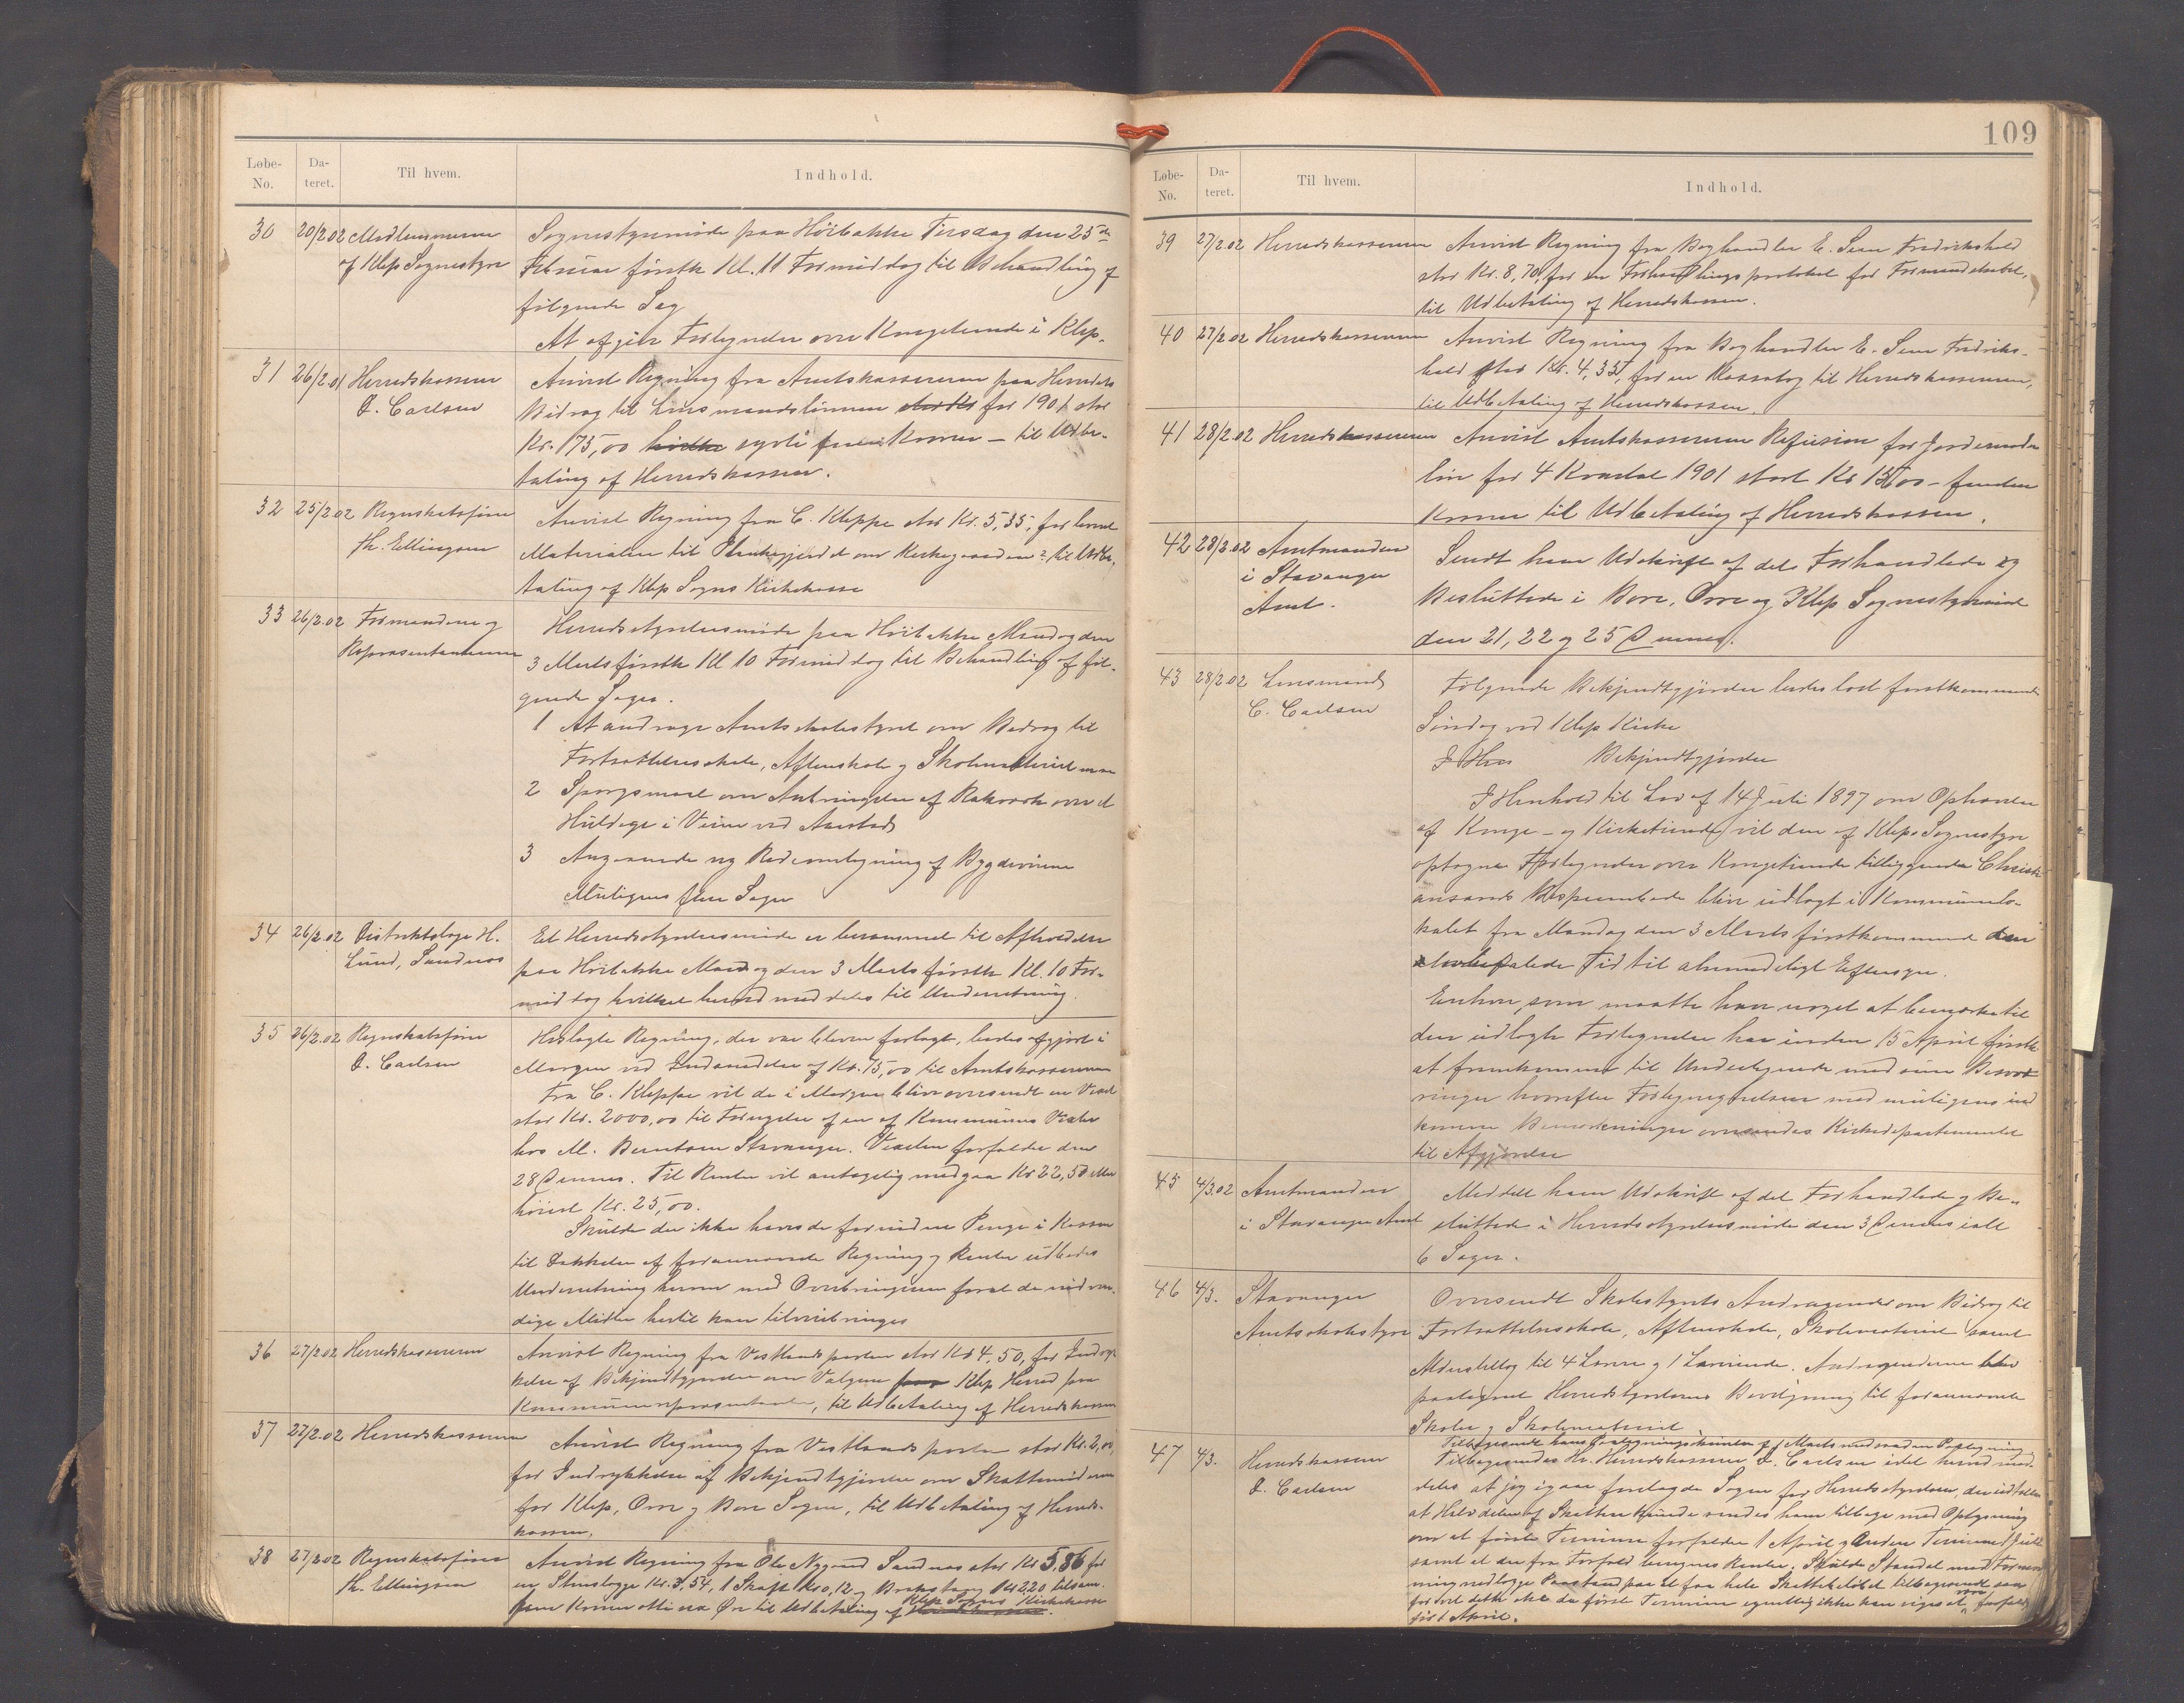 Løbe-No. Da-teret. Til hvem. Indhold.
30 20/2.02 Medlemmerne Sognestyremøde paa Höibakke Tirsdag den 25de
af Klep Sognestyre Februar førstk Kl. 11 Formiddag til Behandling af
følgende Sag
At afgive Forlegnde over Kongetiende i Klep.
31 26/2.01 Herredskasserer Anvist Regning fra Amtskassereren paa Herredets
O. Carlsen Bidrag til Lensmandslønnen for 1901 stor
Kr. 175,00 sytti fem Kroner – til Udbe-
taling af Herredskassen.
32 25/2.02 Regnskabsfører Anvist Regning fra C. Kleppe stor Kr. 5,35, for leveret
Th. Ellingsen Materialier til Plankegjerdet om Kirkegaarden til Udbe-
taling af Klep Sogns Kirkekasse
33 26/2.02 Formændene og Herredsstyrelsesmøde paa Höibakke Mandag den
Repræsentanterne 3 Marts førstk Kl 10 Formiddag til Behandling af føl-
gende Sager.
1 At andrage Amtsskolestyret om Bidrag til
Fortsættelsesskole, Aftenskole og Skolemateriel
2 Spørgsmaal om Anbringelse af Rækværk over et
i Veien ved Anstad
3 Angaaende ny Rodeomlegning af Bygdeveiene
Muligens flere Sager
34 26/2.02 Distriktslæge H. Et Herredsstyrelsesmøde er berammet til Afholdelse
Lund, Sandnes paa Höibakke Mandag den 3 Marts førstk Kl. 10 For-
middag hvilket herved meddeles til Underretning.
35 26/2.02 Regnskabsfører Hoslagte Regning, der var bleven forlagt, bedes afgjort i
O. Carlsen Morgen ved Indsendelse af Kr. 75,00 til Amtskassereren
Fra C. Kleppe vil de i Morgen blive oversendt en Vexel
stor Kr. 2000,00 til Fornyelse af en af Kommunens Vexler
hos M. Berntsen Stavanger. Vexelen forfalder den
28 Dennes. Til Renter vil antagelig medgaa Kr 22,50 eller
høiest Kr. 25,00.
Skulde der ikke haves de fornødne Penge i Kassen
til Dækkelse af forannævnte Regning og Renter udbedes
Underretning herom med Overbringeren forat de nødven-
dige Midler hertil kan tilveiebringes
36 27/2.02 Herredskassereren Anvist Regning fra Vestlandsposten stor Kr 4,50, for Indryk-
kelse af Bekjendtgjørelse om Valgene Klep Herred paa
Kommunerepræsentanter, til Udbetaling af Herredskassen
37 27/2.02 Herredskassereren Anvist Regning fra Vestlandsposten stor Kr. 2,00,
for Indrykkelse af Bekjendtgjørelse om Skattemøderne
for Klep, Orre og Bore Sogne, til Udbetaling af Herreds-
kassen.
38 27/2.02 Regnskabsfører Anvist Regning fra Ole Nygaard Sandnes stor Kr 5,86 for
Th. Ellingsen en Kr. 3,54, 1 Skaft Kr 0,12 og Kr 2,20 tilsam.
fem Kroner otti sex Øre til Udbetaling af Klep Sogns Kirkekasse.
109
Løbe-No. Da-teret. Til hvem. Indhold.
39 27/2.02 Herredskassereren Anvist Regning fra Boghandler E. Sem Fredrikshald
stor Kr. 8,70, for en Forhandlingsprotokol for Formandskabet,
til Udbetaling af Herredskassen.
40 27/2.02 Herredskassereren Anvist Regning fra Boghandler E. Sem Fredriks-
hald stor Kr. 4,35, for en Kassabog til Herredskassereren,
til Udbetaling af Herredskassen.
41 28/2.02 Herredskassereren Anvist Amtskassereren Refusion for Jordemoder
løn for 4 Kvartal 1901 stort Kr 15,00 – femten
Kroner til Udbetaling af Herredskassen.
42 28/2.02 Amtmanden Sendt ham Udskrift af det Forhandlede og
i Stavanger Besluttede i Bore, Orre og Klep Sognestyremøde
Amt. den 21, 22 og 25 Dennes.
43 28/2.02 Lensmand Følgende Bekjendtgjørelse bedes læst førstkommende
C. Carlsen Søndag ved Klep Kirke
Bekjendtgjørelse
I Henhold til Lov af 14 Juli 1897 om Ophævelse
af Konge- og Kirketiende vil den af Klep Sognestyre
optagne Forlegnelse over Kongetiende tilliggende Christi-
ansands Bispeembede blive udlagt i Kommunelo-
kalet fra Mandag den 3 Marts førstkommende den
lovbefalede Tid til almindeligt Eftersyn.
Enhver, som maatte have noget at bemærke til
den udlagte Forlegnelse har inden 15 April førstk
at fremkomme til Undertegnede med sine Besvæ-
ringer hvorefter med muligens ind-
komne Bemærkninger oversendes Kirkedepartementet
til Afgjørelse
45 4/3.02 Amtmanden Meddelt ham Udskrift af det Forhandlede og Be-
i Stavanger Amt sluttede i Herredsstyrelsesmøde den 3 Dennes ialt
6 Sager.
46 4/3. Stavanger Oversendt Skolestyrets Andragender om Bidrag til
Amtsskolestyre Fortsættelsesskole, Aftenskole, Skolemateriel samt
Alderstillæg til 4 Lærere og 1 Lærerinde. Andragenderne blev
paategnet Herredsstyrelsens Bevilgning til forannævnte
Skoler og Skolemateriel
47 4/3. Herredskasserer
O. Carlsen Tilbagesendes Hr. Herredskasserer O. Carlsen idet herved med-
deles at jeg igaar forelagde Sagen for Herredsstyrelsen, der udtalte
at Halvdelen af Skatten kunde sendes ham tilbage med Oplysning
om at første Termin forfalder 1 April og Anden Termin 1 Juli
samt at der fra Forfald beregnes Renter, Skulde Standet med Formod-
ning nedlægge Paastand paa at faa hele Skattebeløbet tilbagesendt
før 1 April.